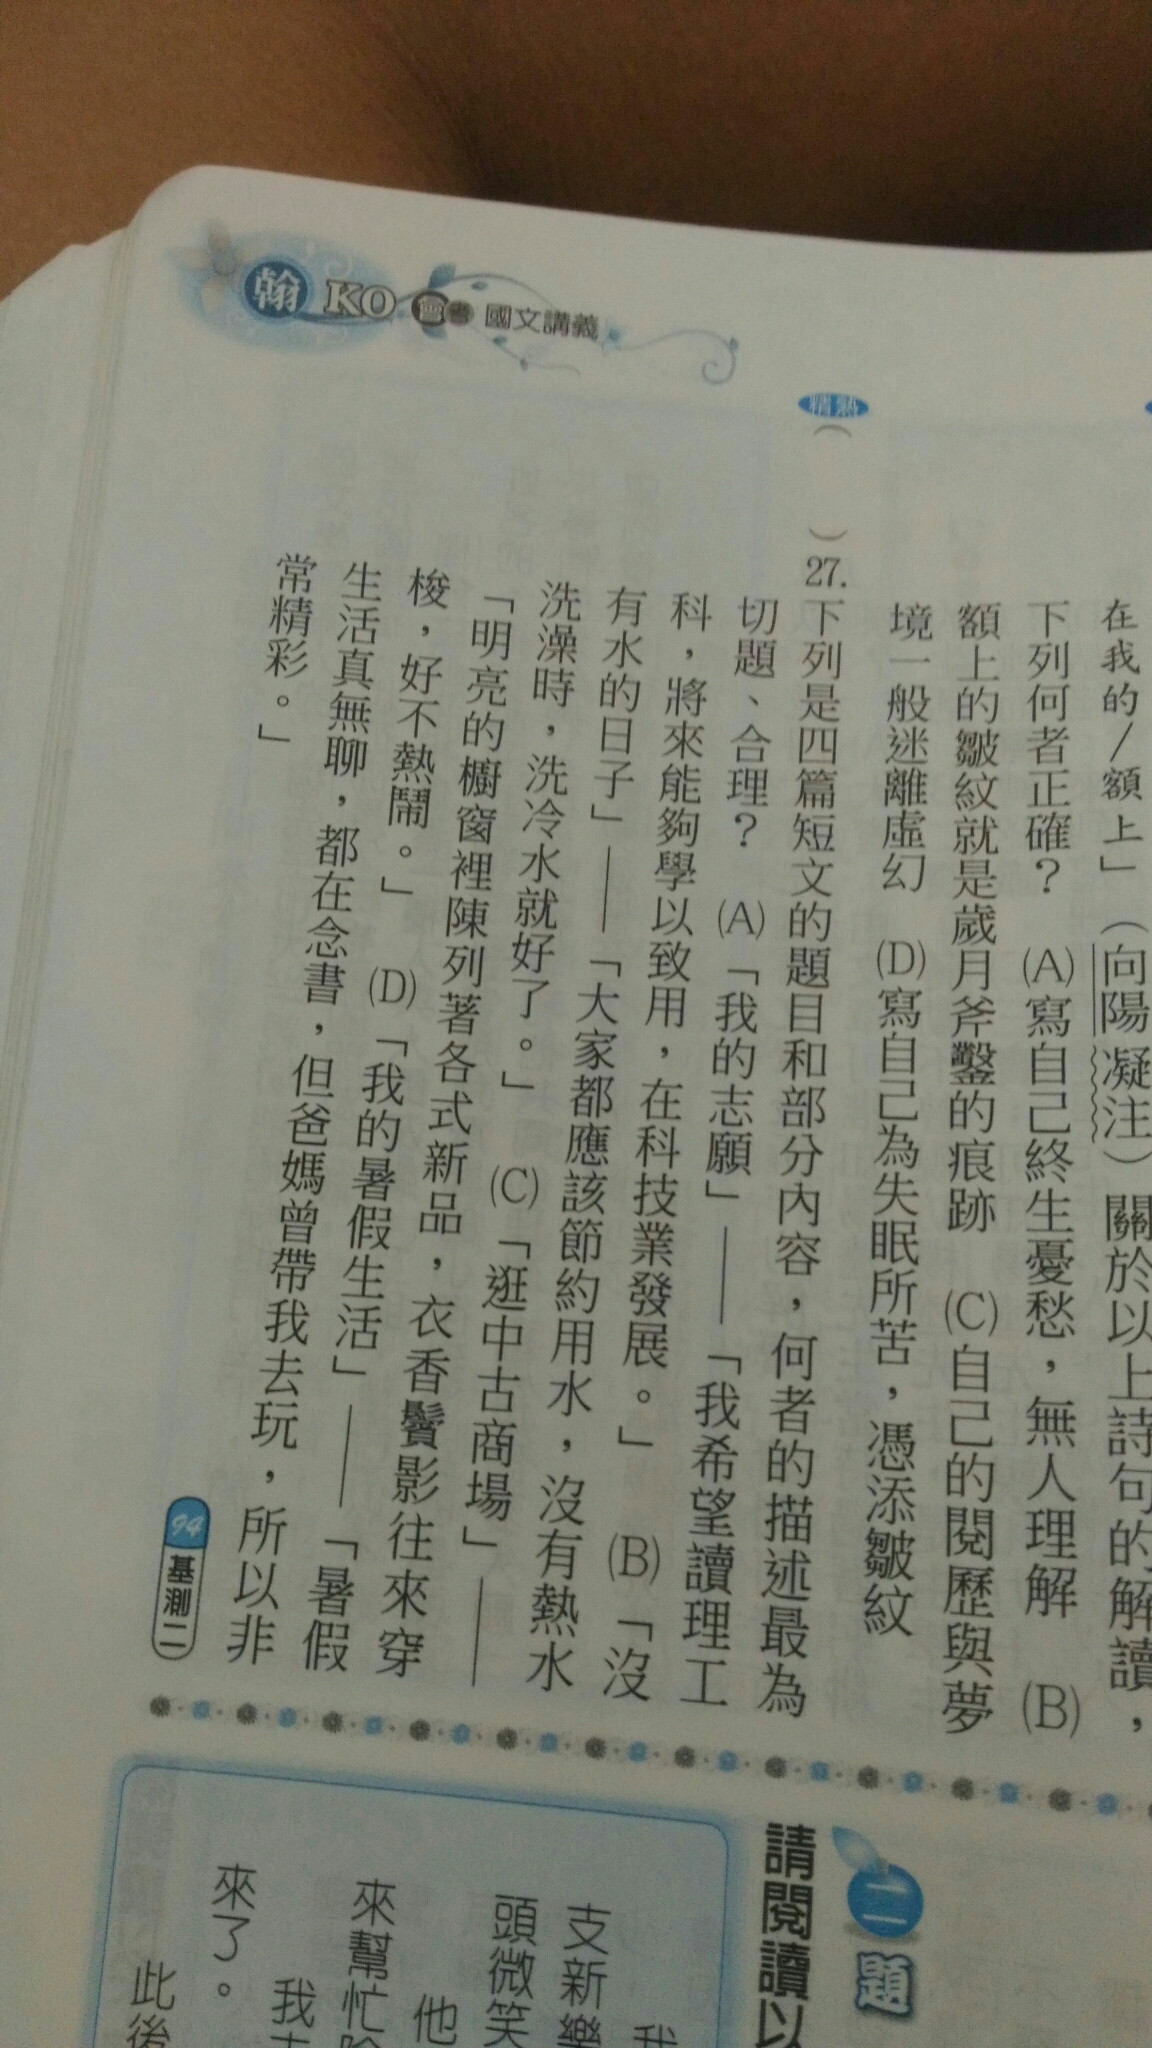 翰 KO 會考 國文講義
在我的／額上」（向陽凝注）關於以上詩句的解讀，
下列何者正確？ (A)寫自己終生憂愁，無人理解 (B)
額上的皺紋就是歲月斧鑿的痕跡 (C)自己的閱歷與夢
境一般迷離虛幻 (D)寫自己為失眠所苦，憑添皺紋
精熟
（ ）27.下列是四篇短文的題目和部分內容，何者的描述最為
切題、合理？ (A)「我的志願」——「我希望讀理工
科，將來能夠學以致用，在科技業發展。」 (B)「沒
有水的日子」——「大家都應該節約用水，沒有熱水
洗澡時，洗冷水就好了。」 (C)「逛中古商場」——
「明亮的櫥窗裡陳列著各式新品，衣香鬢影往來穿
梭，好不熱鬧。」 (D)「我的暑假生活」——「暑假
生活真無聊，都在念書，但爸媽曾帶我去玩，所以非
常精彩。」
94基測二
二 題
請閱讀以
我
支新樂
頭微笑
他
來幫忙
我
來了。
此後